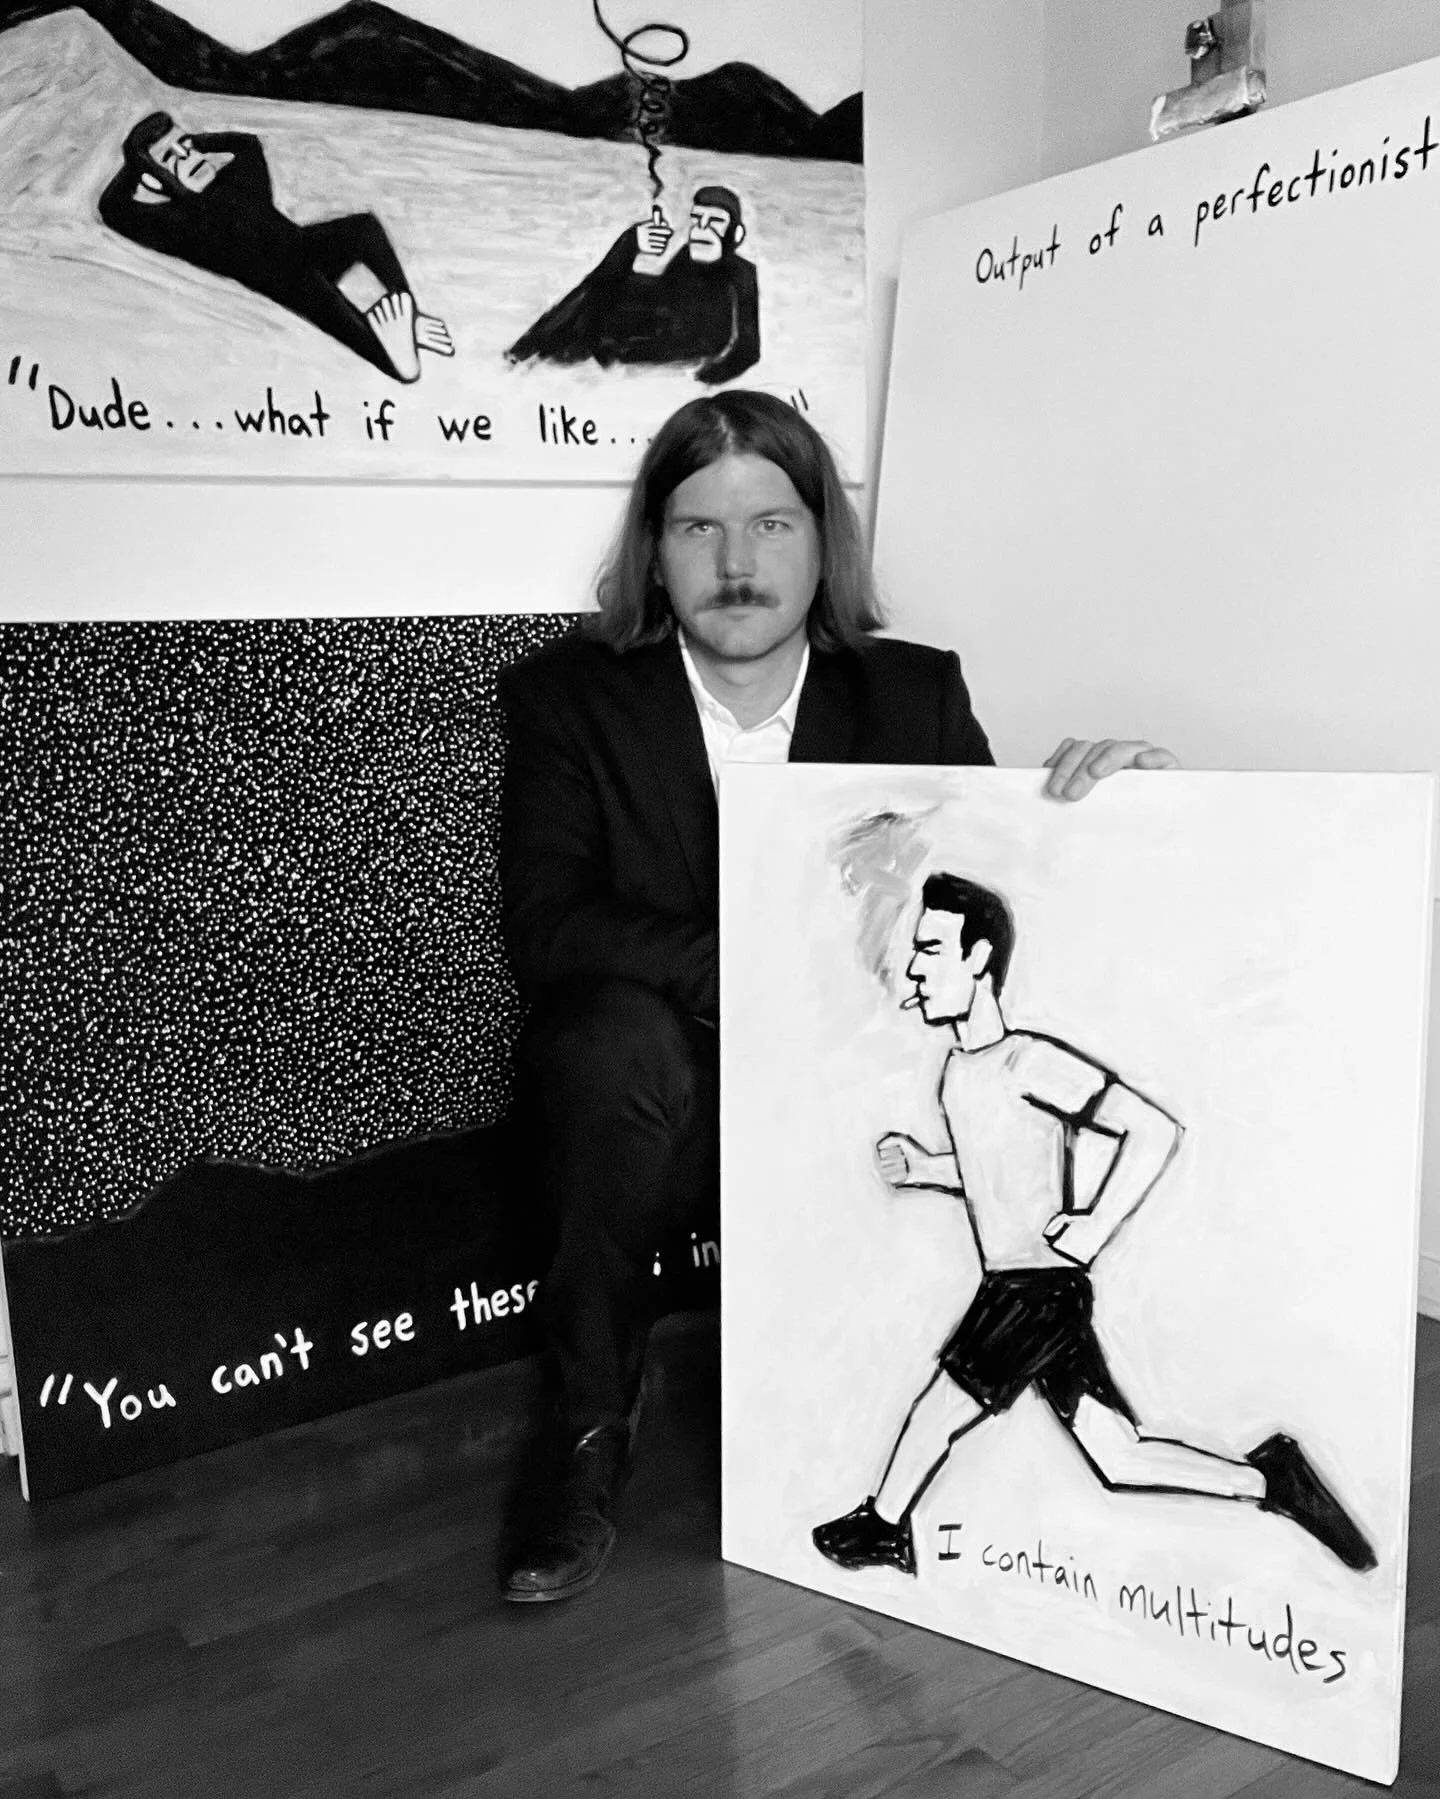 "Dude...what if we like... "
Output of a perfectionist
"You can't see these in
I contain multitudes